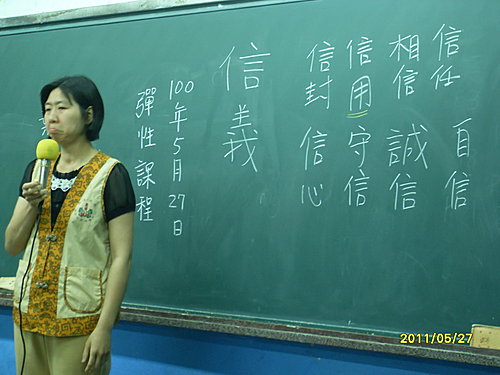 信任 自信
相信 誠信
信用 守信
信封 信心
信義
100年5月27日
彈性課程
2011/05/27